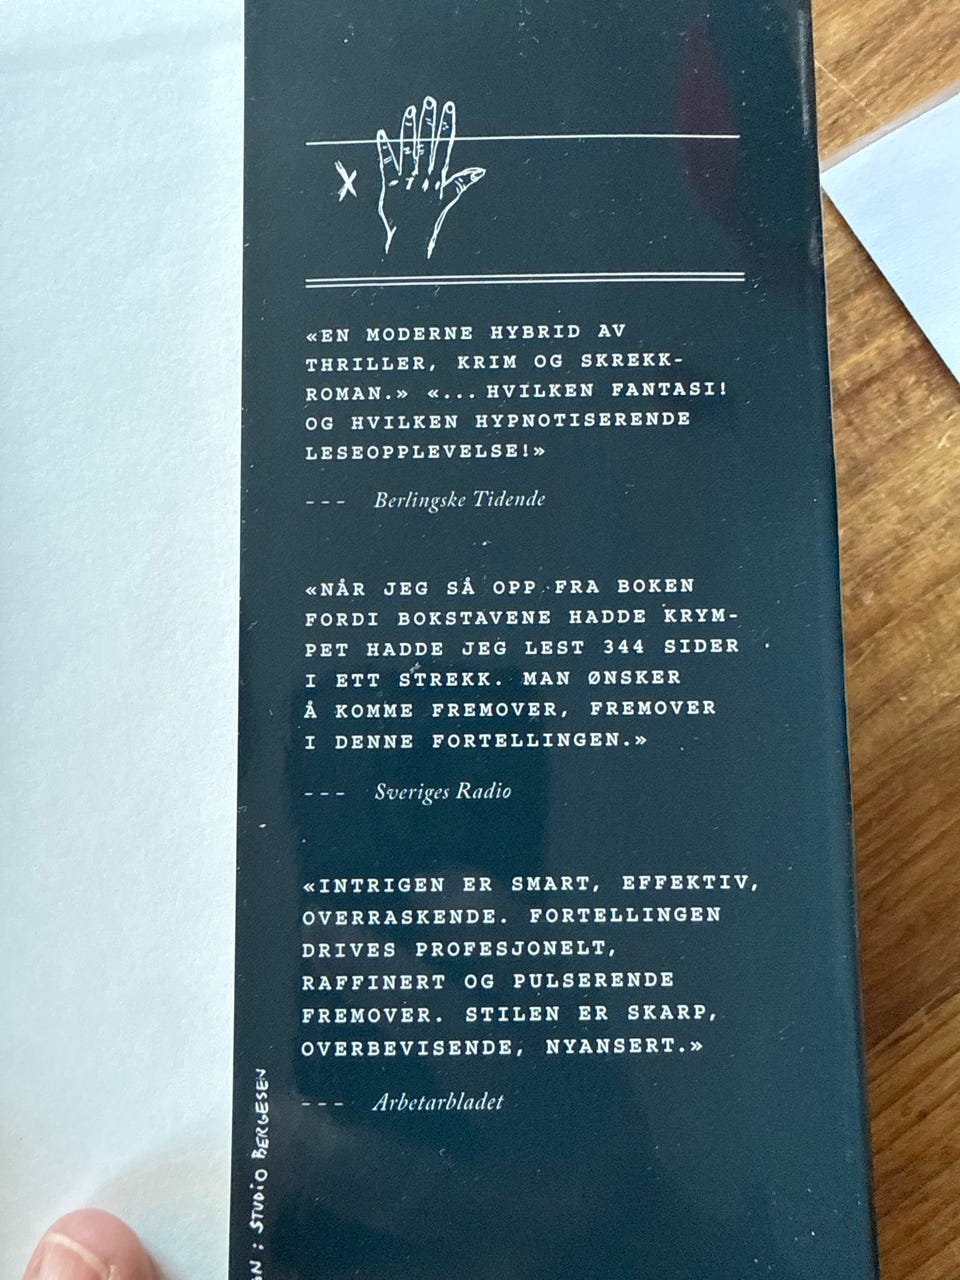 «EN MODERNE HYBRID AV
THRILLER, KRIM OG SKREKK-
ROMAN.» «... HVILKEN FANTASI!
OG HVILKEN HYPNOTISERENDE
LESEOPPLEVELSE!»
--- Berlingske Tidende
«NÅR JEG SÅ OPP FRA BOKEN
FORDI BOKSTAVENE HADDE KRYM-
PET HADDE JEG LEST 344 SIDER
I ETT STREKK. MAN ØNSKER
Å KOMME FREMOVER, FREMOVER
I DENNE FORTELLINGEN.»
--- Sveriges Radio
«INTRIGEN ER SMART, EFFEKTIV,
OVERRASKENDE. FORTELLINGEN
DRIVES PROFESJONELT,
RAFFINERT OG PULSERENDE
FREMOVER. STILEN ER SKARP,
OVERBEVISENDE, NYANSERT.»
--- Arbetarbladet
: STUDIO BERGESEN